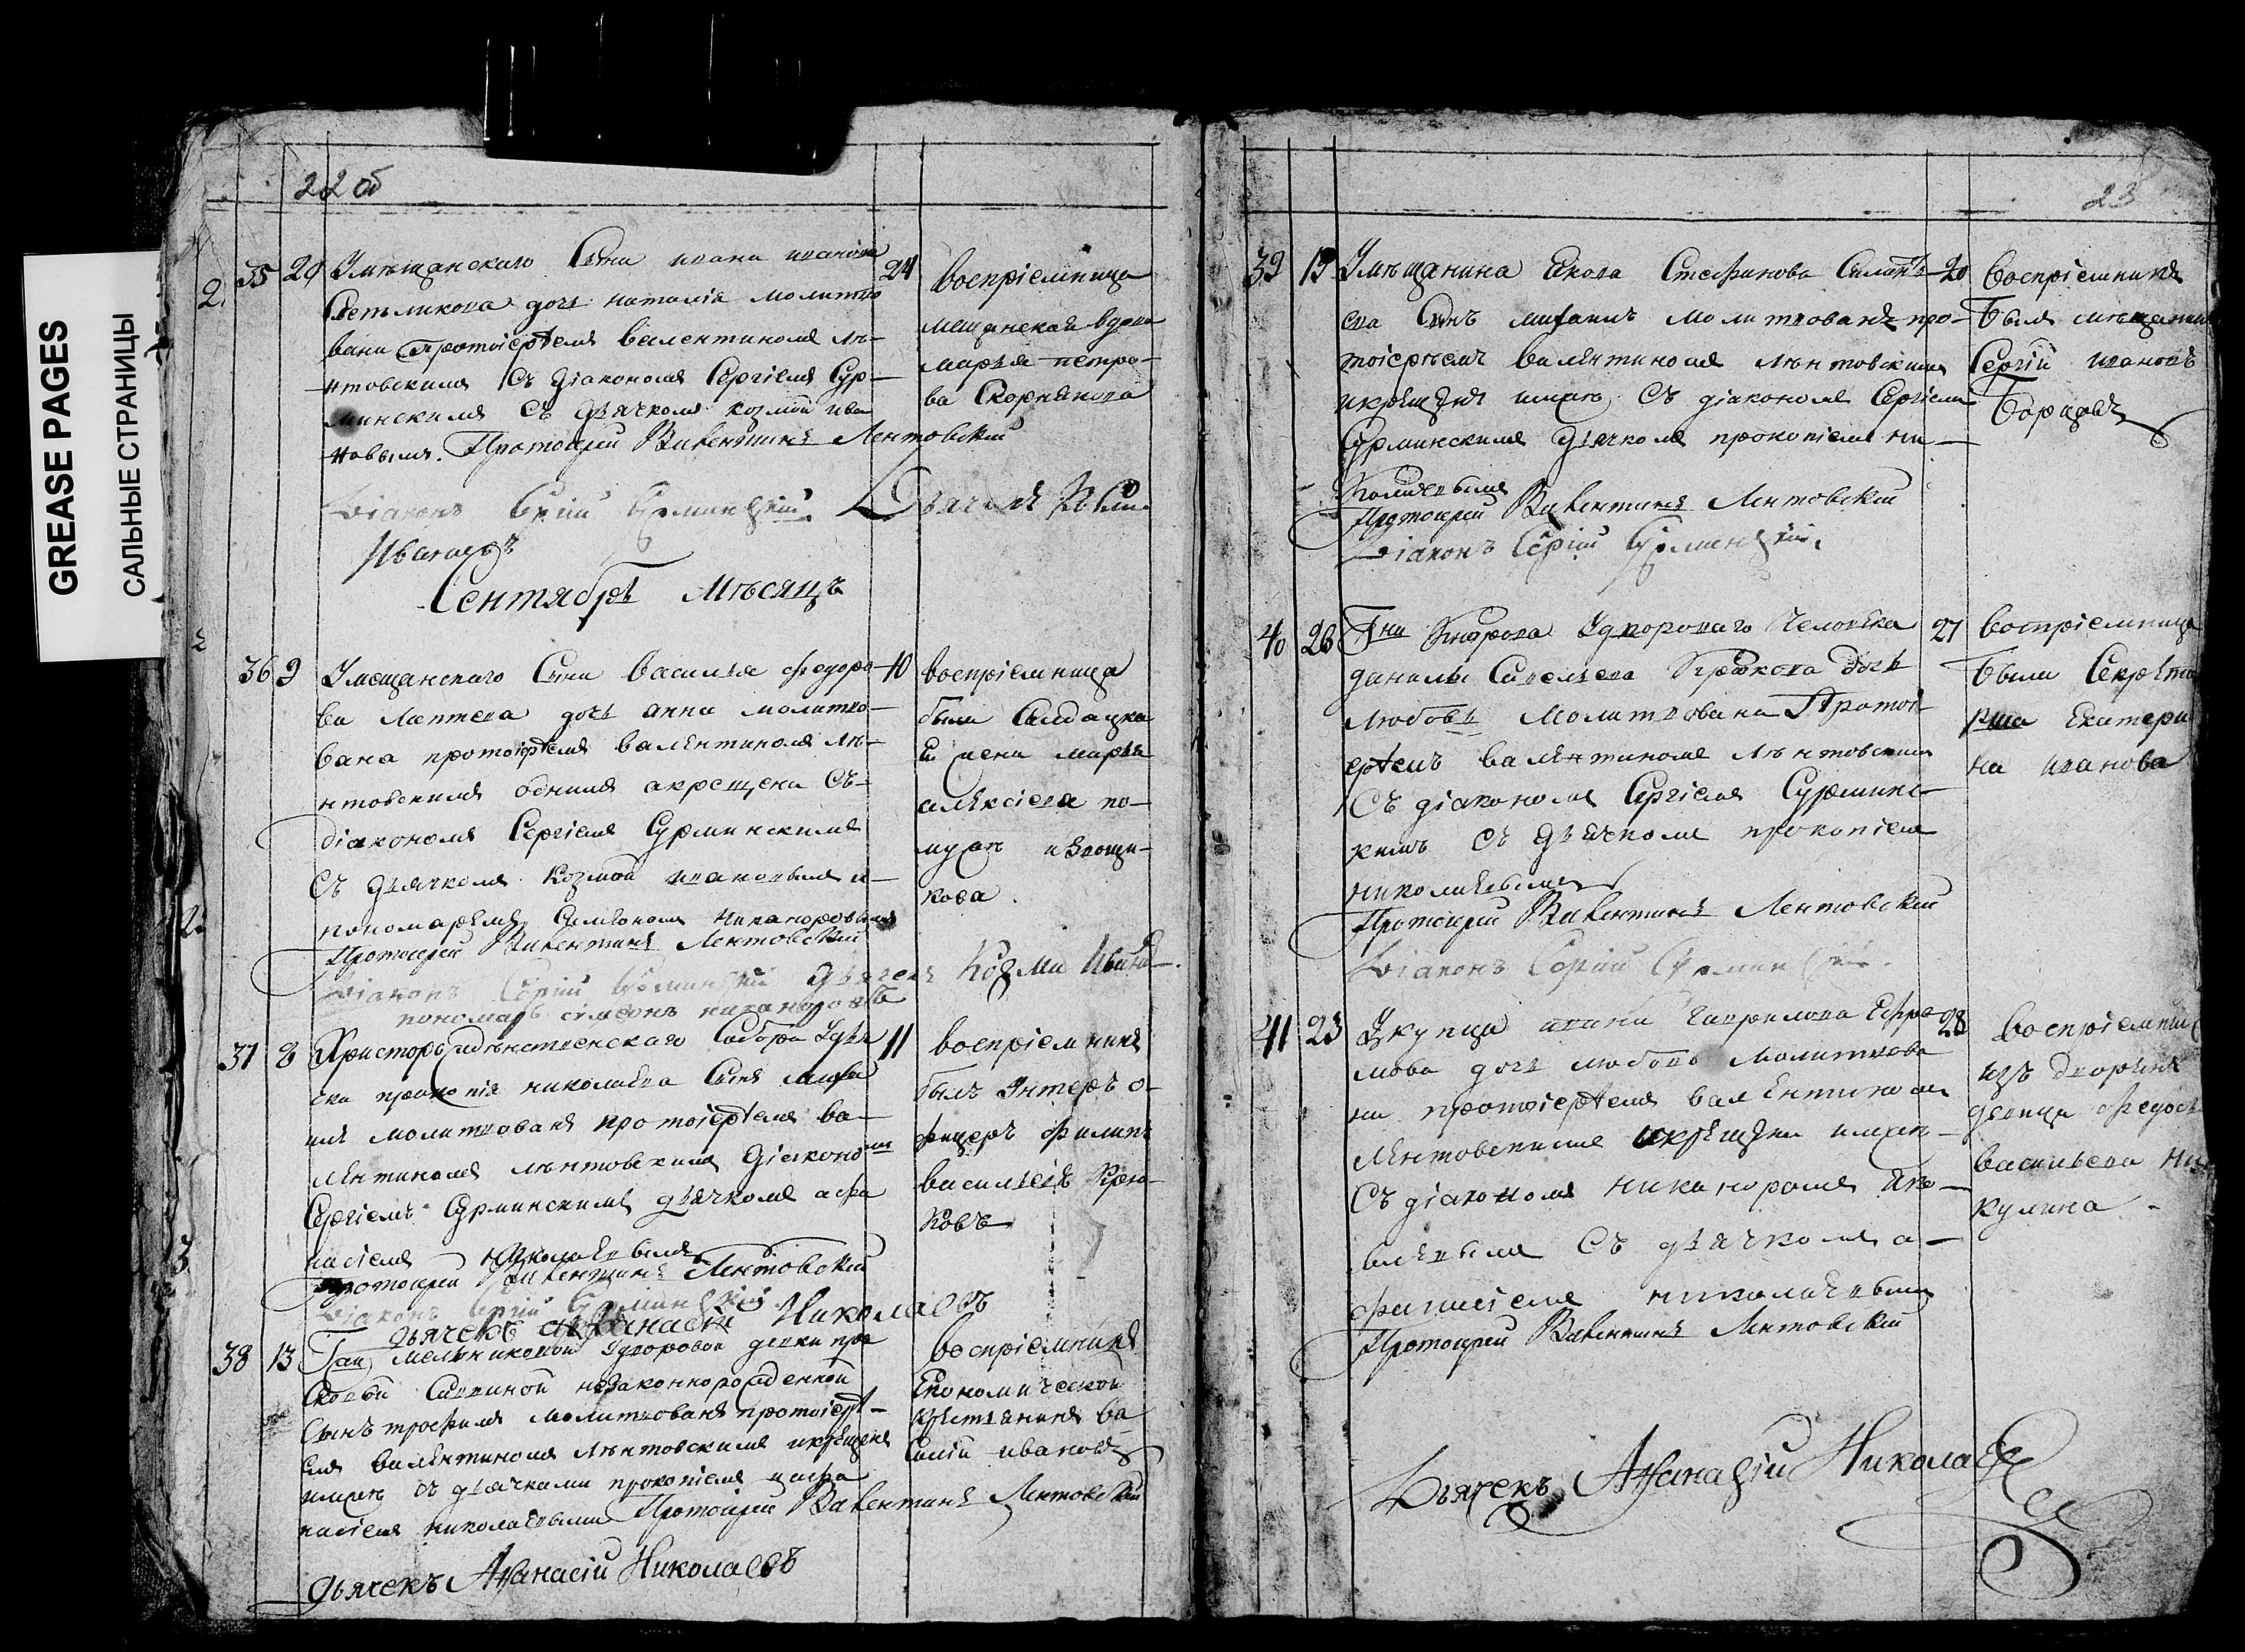 GREASE PAGES
САЛЬНЫЕ СТРАНИЦЫ
22 об
35 29 У мещанскаго Сына ивана иванова 24
дочь наталія молитво
вана протоіереемъ валентиномъ лѣ-
нтовскимъ съ діакономъ Сергіемъ Сур-
минскимъ съ дьячкомъ козмой ива
новымъ. Протоіерей Валентинъ Лентовскій
Діаконъ Сергій Сурминскій Дьячекъ
Ивановъ
воспріемница
мещанская вдова
марья петро-
ва Скорнякова
Сентябрь мѣсяцъ
36 9 У мещанскаго Сына Василья федоро- 10
ва Лаптева дочь анна молитво-
вана протоіереемъ валентиномъ лѣ-
нтовскимъ онымъ а крещена съ-
діакономъ Сергіемъ Сурминскимъ
съ дьячкомъ козмой ивановымъ и-
пономаремъ Симеономъ Никаноровымъ
Протоіерей Валентинъ Лентовскій
Діаконъ Сергій Сурминскій Дьячекъ Козма Иванов
пономарь симеонъ никаноровъ
воспріемница
была Салдацка
жена марья
алексіева по-
мужѣ извощи-
кова
37 8 Христорождественскаго Собора дья 11
чка прокопія николаева Сынъ миха
илъ молитвованъ протоіереемъ ва-
лентиномъ лѣнтовскимъ діакономъ
Сергіемъ Сурминскимъ дьячкомъ афа
насіемъ николаевымъ
протоіерей Валентинъ Лентовскій
Діаконъ Сергій Сурминскій
дьячекъ афанасій Николаевъ
воспріемникъ
былъ Унтеръ о-
фицеръ филипъ
васильевъ Крю-
ковъ
38 13 Гжи Мельниковой дворовой девки пра
сковьи Савиной незаконнорожденной
Сынъ трофимъ молитвованъ протоіере-
емъ валентиномъ лѣнтовскимъ и крещенъ
имже съ дьячками прокопіемъ и афа
насіемъ николаевыми Протоіерей Валентинъ Лентовскій
дьячекъ Афанасій Николаевъ
воспріемникъ
Економической
крестьянинъ ва
силій ивановъ
23
39 19 У мѣщанина Якова Стефанова 20
ева Сынъ михаилъ молитвованъ про-
тоіереемъ валентиномъ лѣнтовскимъ
и крещенъ имже съ діакономъ Сергіемъ
Сурминскимъ дьячкомъ прокопіемъ ни-
колаевымъ
Протоіерей Валентинъ Лентовскій
Діаконъ Сергій Сурминскій
воспріемникъ
былъ мѣщанин
Сергій ивановъ
Борцовъ
40 26 Гна дворового человека 27
данилы Савельева Крюкова дочь
Любовь молитвована Протоі-
ереемъ валентиномъ лѣнтовскимъ
съ діакономъ Сергіемъ Сурминс-
кимъ съ дьячкомъ прокопіемъ
николаевымъ
Протоіерей Валентинъ Лентовскій
Діаконъ Сергій Сурминскій
воспріемница
была Секрета
рша Екатери
на иванова
41 23 У купца ивана гаврилова Ефре 28
мова дочь любовь молитвова
на протоіереемъ валентиномъ
лентовскимъ и крещена имже-
съ діакономъ никаноромъ Яко-
влевымъ съ дьячкомъ а-
фанасіемъ николаевымъ
Протоіерей Валентинъ Лентовскій
воспріемниц
изъ дворянъ
девица федось
васильева Ни
кулина
Дьячекъ Афанасій Николаевъ